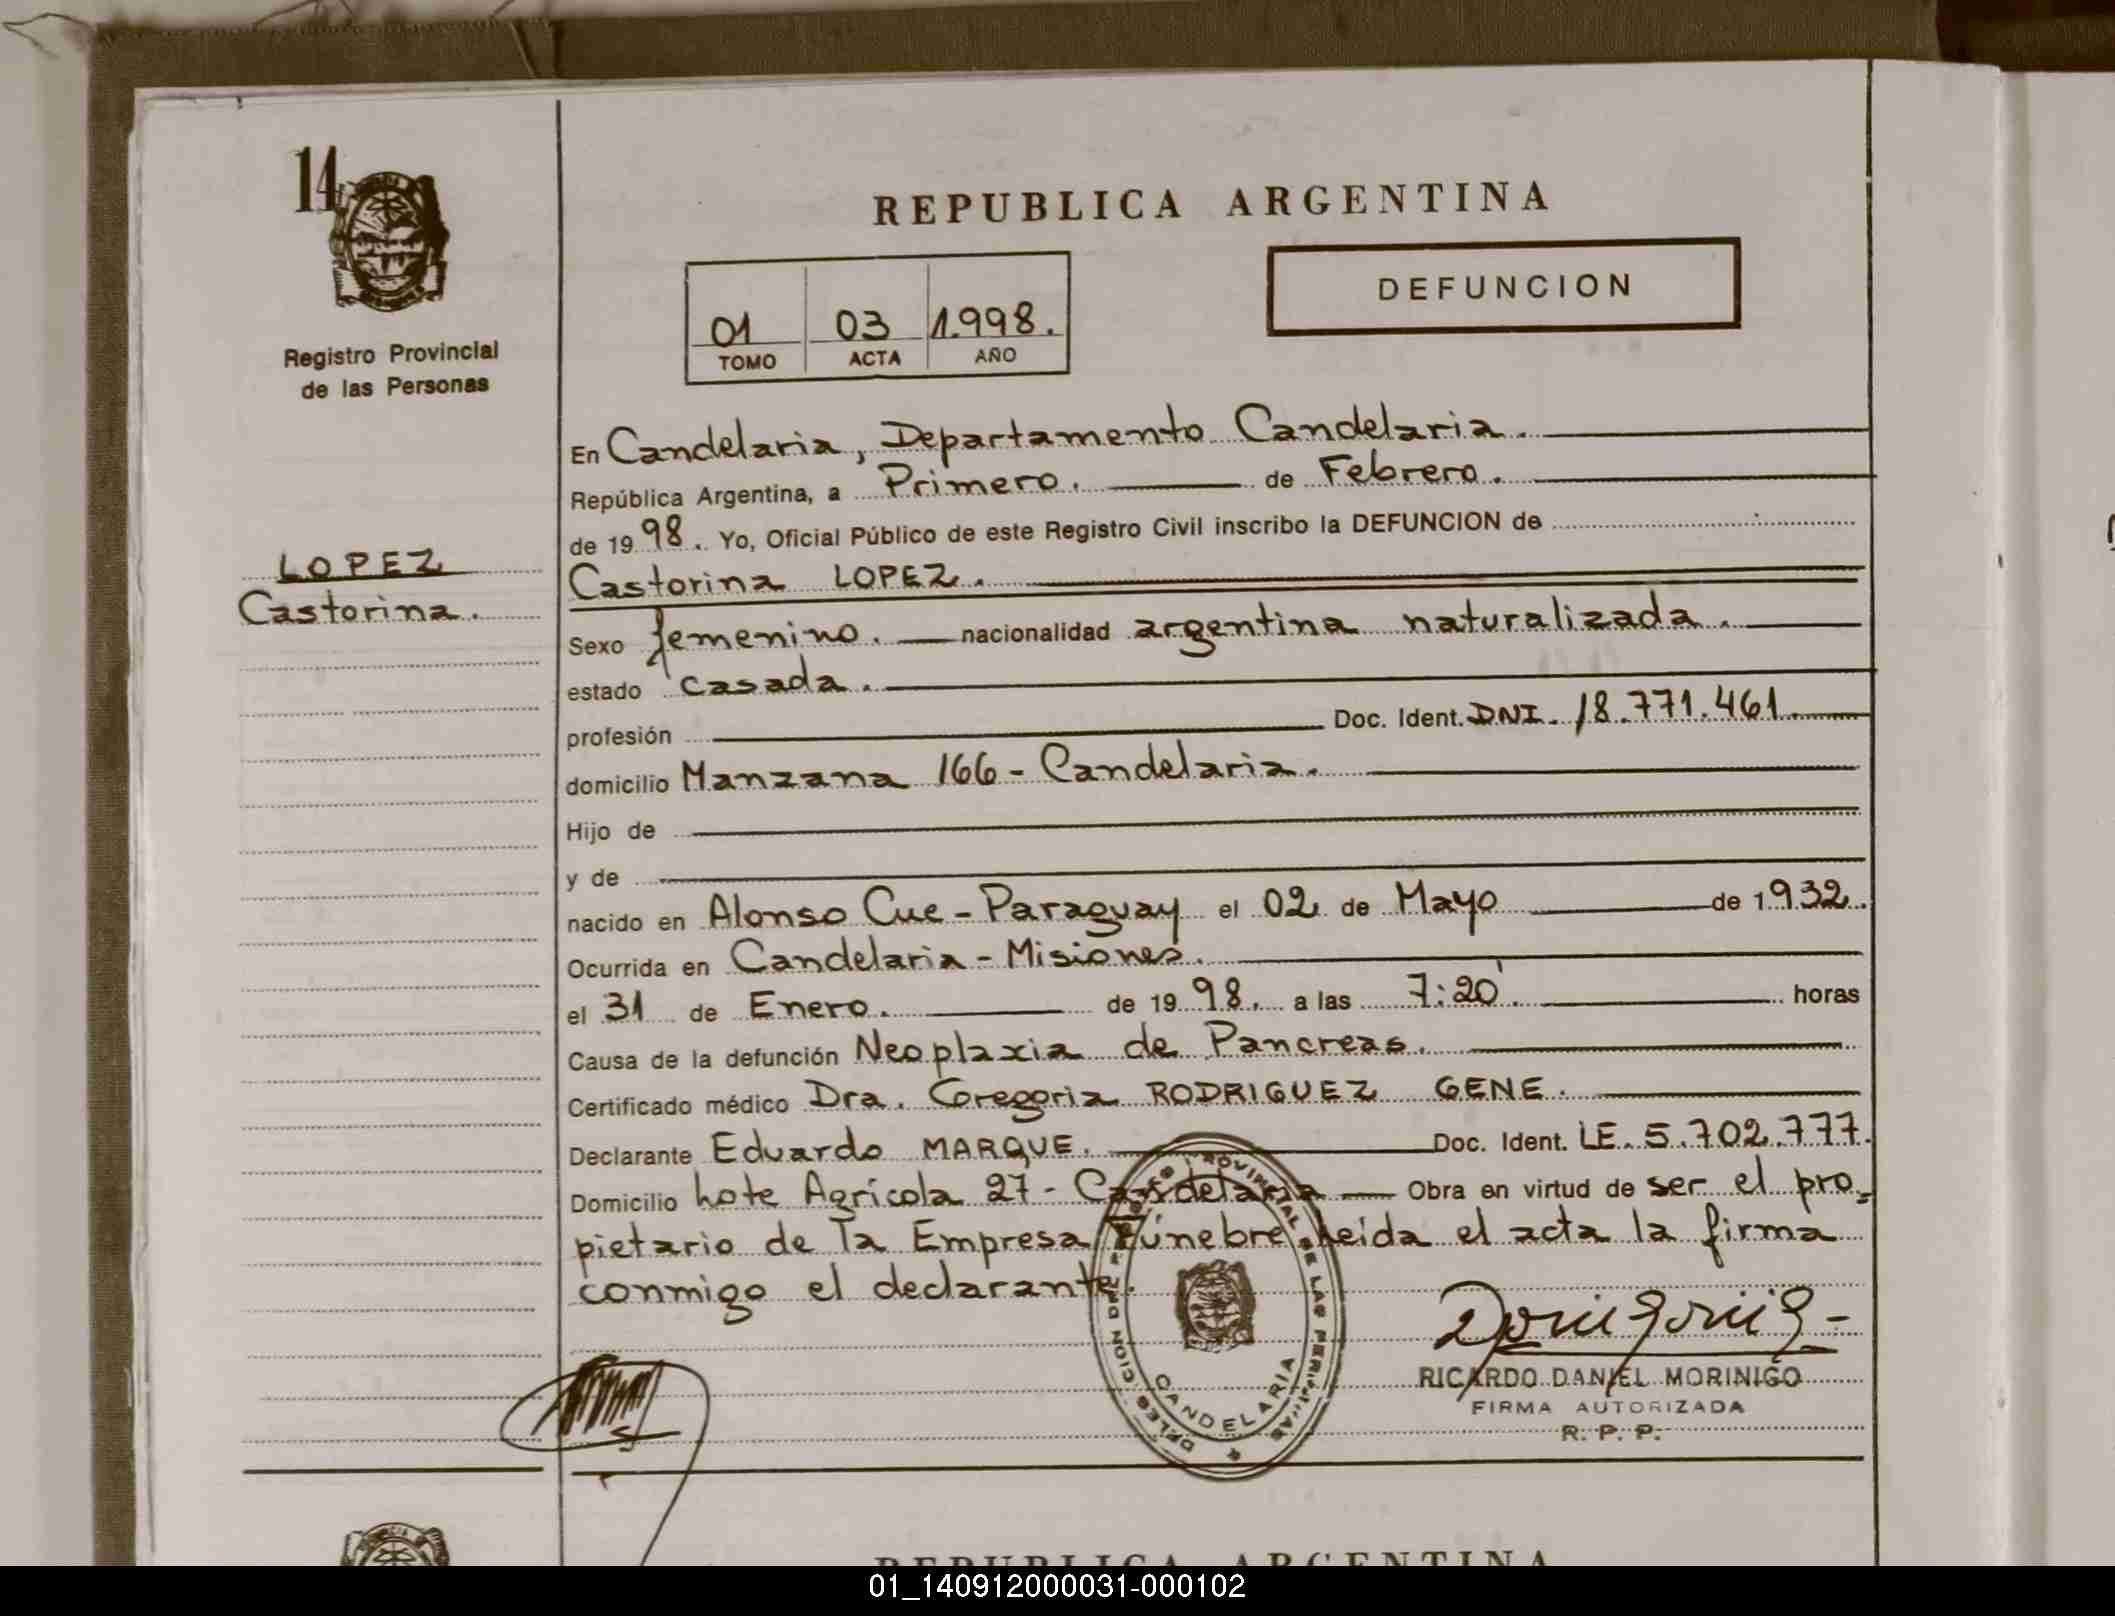 14
Registro Provincial
de las Personas
LOPEZ
Castorina.
REPUBLICA ARGENTINA
DEFUNCION
01 03 1.998.
TOMO ACTA AÑO
En Candelaria, Departamento Candelaria.
República Argentina, a Primero. de Febrero.
de 19 98. Yo, Oficial Público de este Registro Civil inscribo la DEFUNCION de
Castorina LOPEZ.
Sexo femenino. nacionalidad argentina naturalizada.
estado casada.
profesión Doc. Ident. DNI. 18.771.461.
domicilio Manzana 166 - Candelaria.
Hijo de
y de
nacido en Alonso Cue - Paraguay el 02 de Mayo de 1932.
Ocurrida en Candelaria - Misiones.
el 31 de Enero. de 19 98. a las 7:20'. horas
Causa de la defunción Neoplaxia de Pancreas.
Certificado médico Dra. Gregoria RODRIGUEZ GENE.
Declarante Eduardo MARQUE. Doc. Ident. LE. 5.702.777.
Domicilio Lote Agrícola 27 - Candelaria Obra en virtud de ser el pro=
pietario de la Empresa Fúnebre. Leida el acta la firma
conmigo el declarante.
CANDELARIA
RICARDO DANIEL MORINIGO
FIRMA AUTORIZADA
R. P. P.
REPUBLICA ARGENTINA
01_140912000031-000102